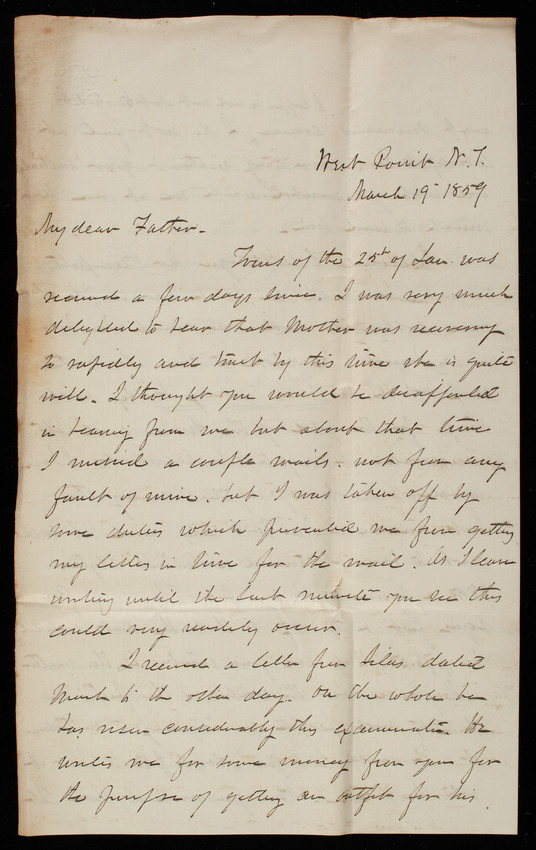 West Point N.Y.
March 19 1859
My dear Father.
Yours of the 25th of Jan was
received a few days since. I was very much
delighted to hear that Mother was recovering
so rapidly and trust by this time she is quite
well. I thought you would be disappointed
in hearing from me but about that time
I missed a couple mails. not from any
fault of mine. but I was taken off by
some duties which prevented me from getting
my letters in time for the mail. As I leave
writing until the last minute you see this
could very readily occur.
I received a letter from Silas dated
March 6 the other day. On the whole he
has risen considerably this examination. He
writes me for some money from you for
the purpose of getting an outfit for his